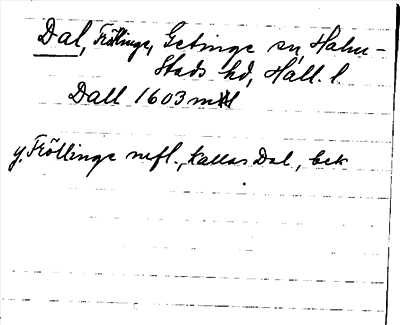 Dal, Fröllinge, Getinge sn, Halm-
stads hd, Hall. l.
Dall 1603 mtl
y. Fröllinge nefl., kallas Dal, bek